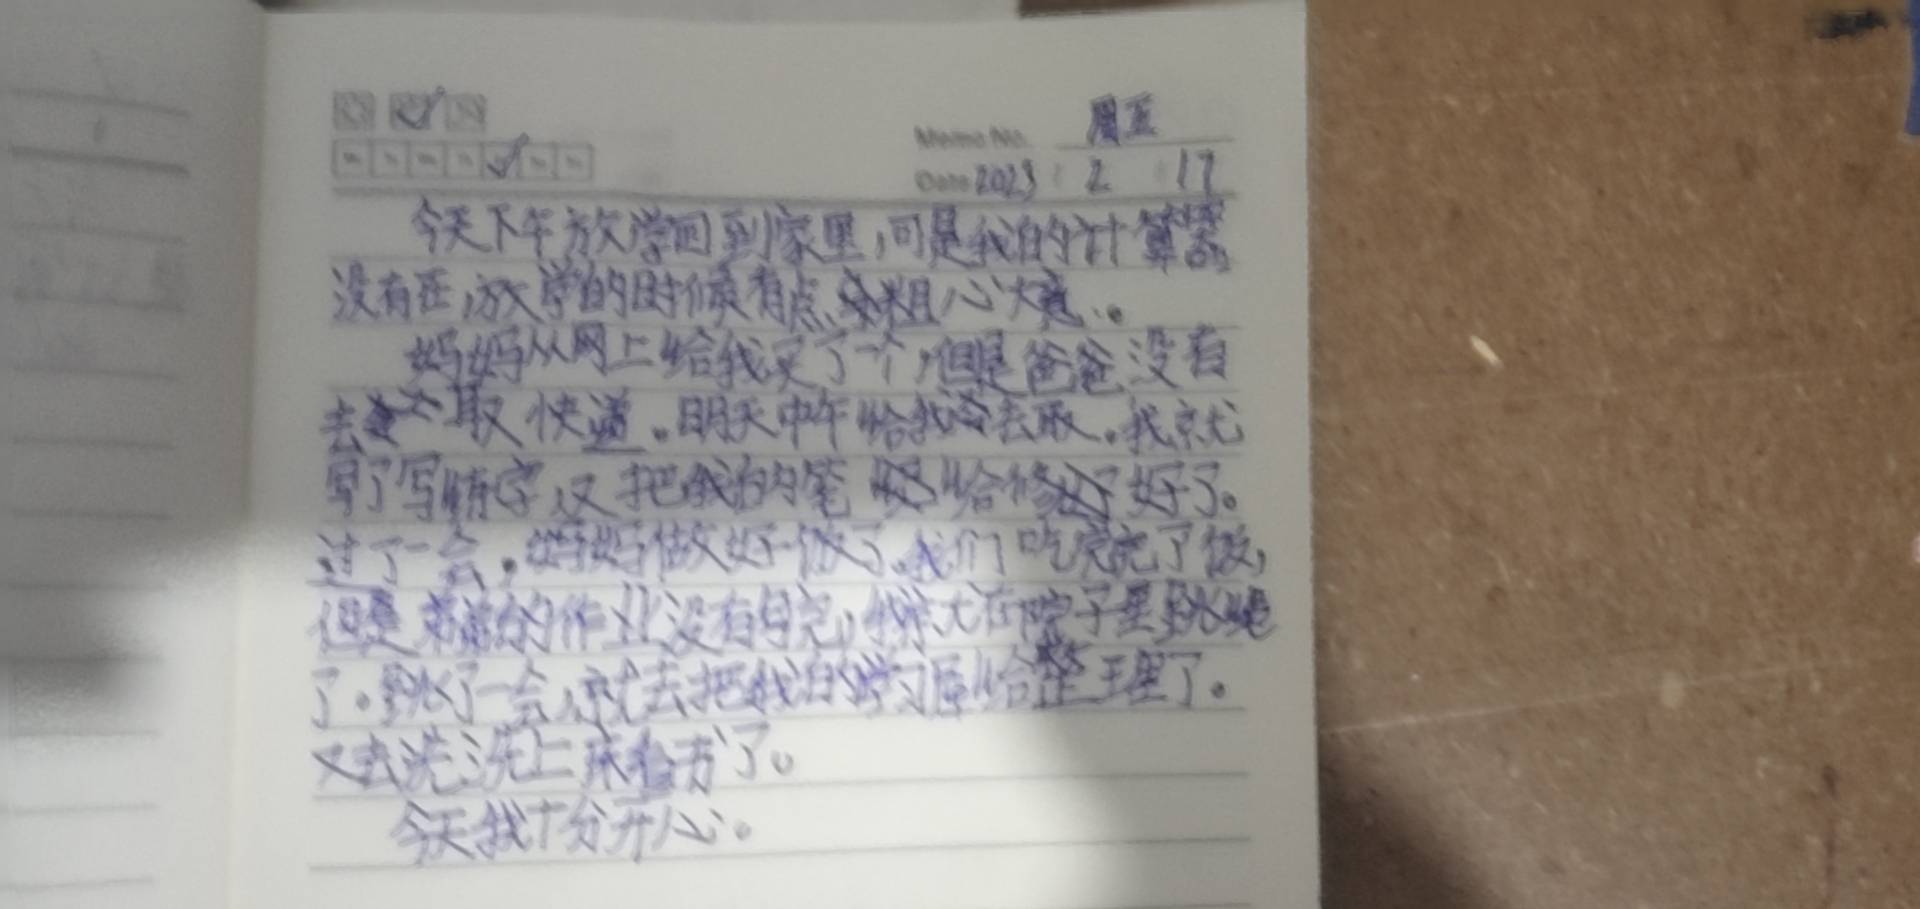 Memo No. 周五
Date 2023 2 17
今天下午放学回到家里,可是我的计算器
没有在,放学的时候有点粗心大意。
妈妈从网上给我买了一个,但是爸爸没有
去取快递。明天中午给我去取。我就
写了写字,又把我的笔给修好了。
过了一会,妈妈做好饭了,我们吃完了饭,
但是弟弟的作业没有写完,我就在院子里跳绳
了。跳了一会,就去把我的学习屋给整理了。
又去洗洗上床看书了。
今天我十分开心。